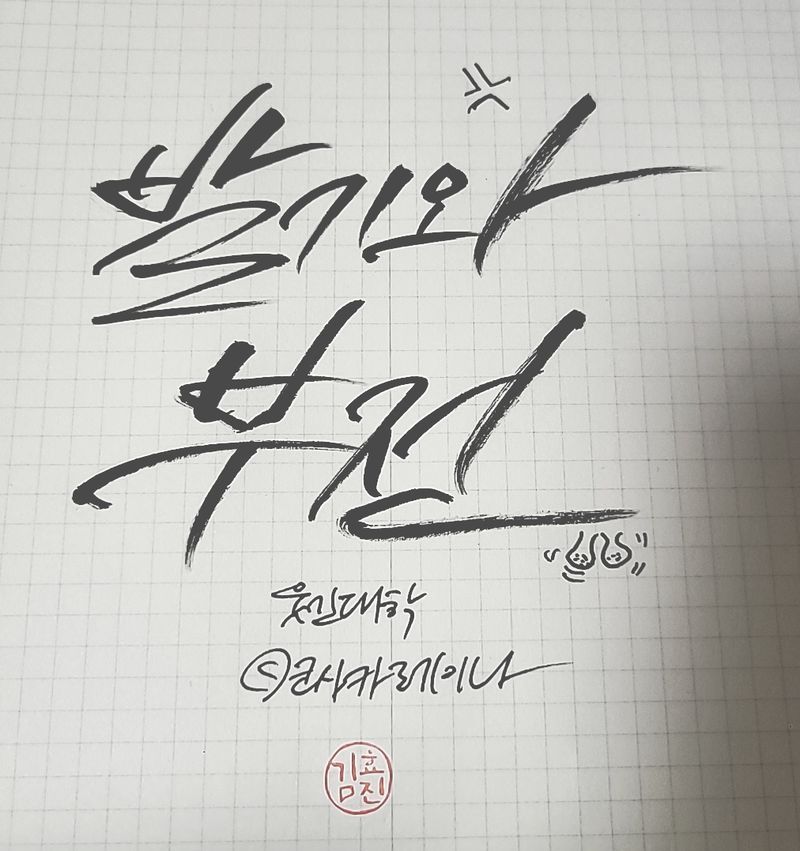 발기와
부전
웃긴대학
ⓒ코사카레이나
김효진